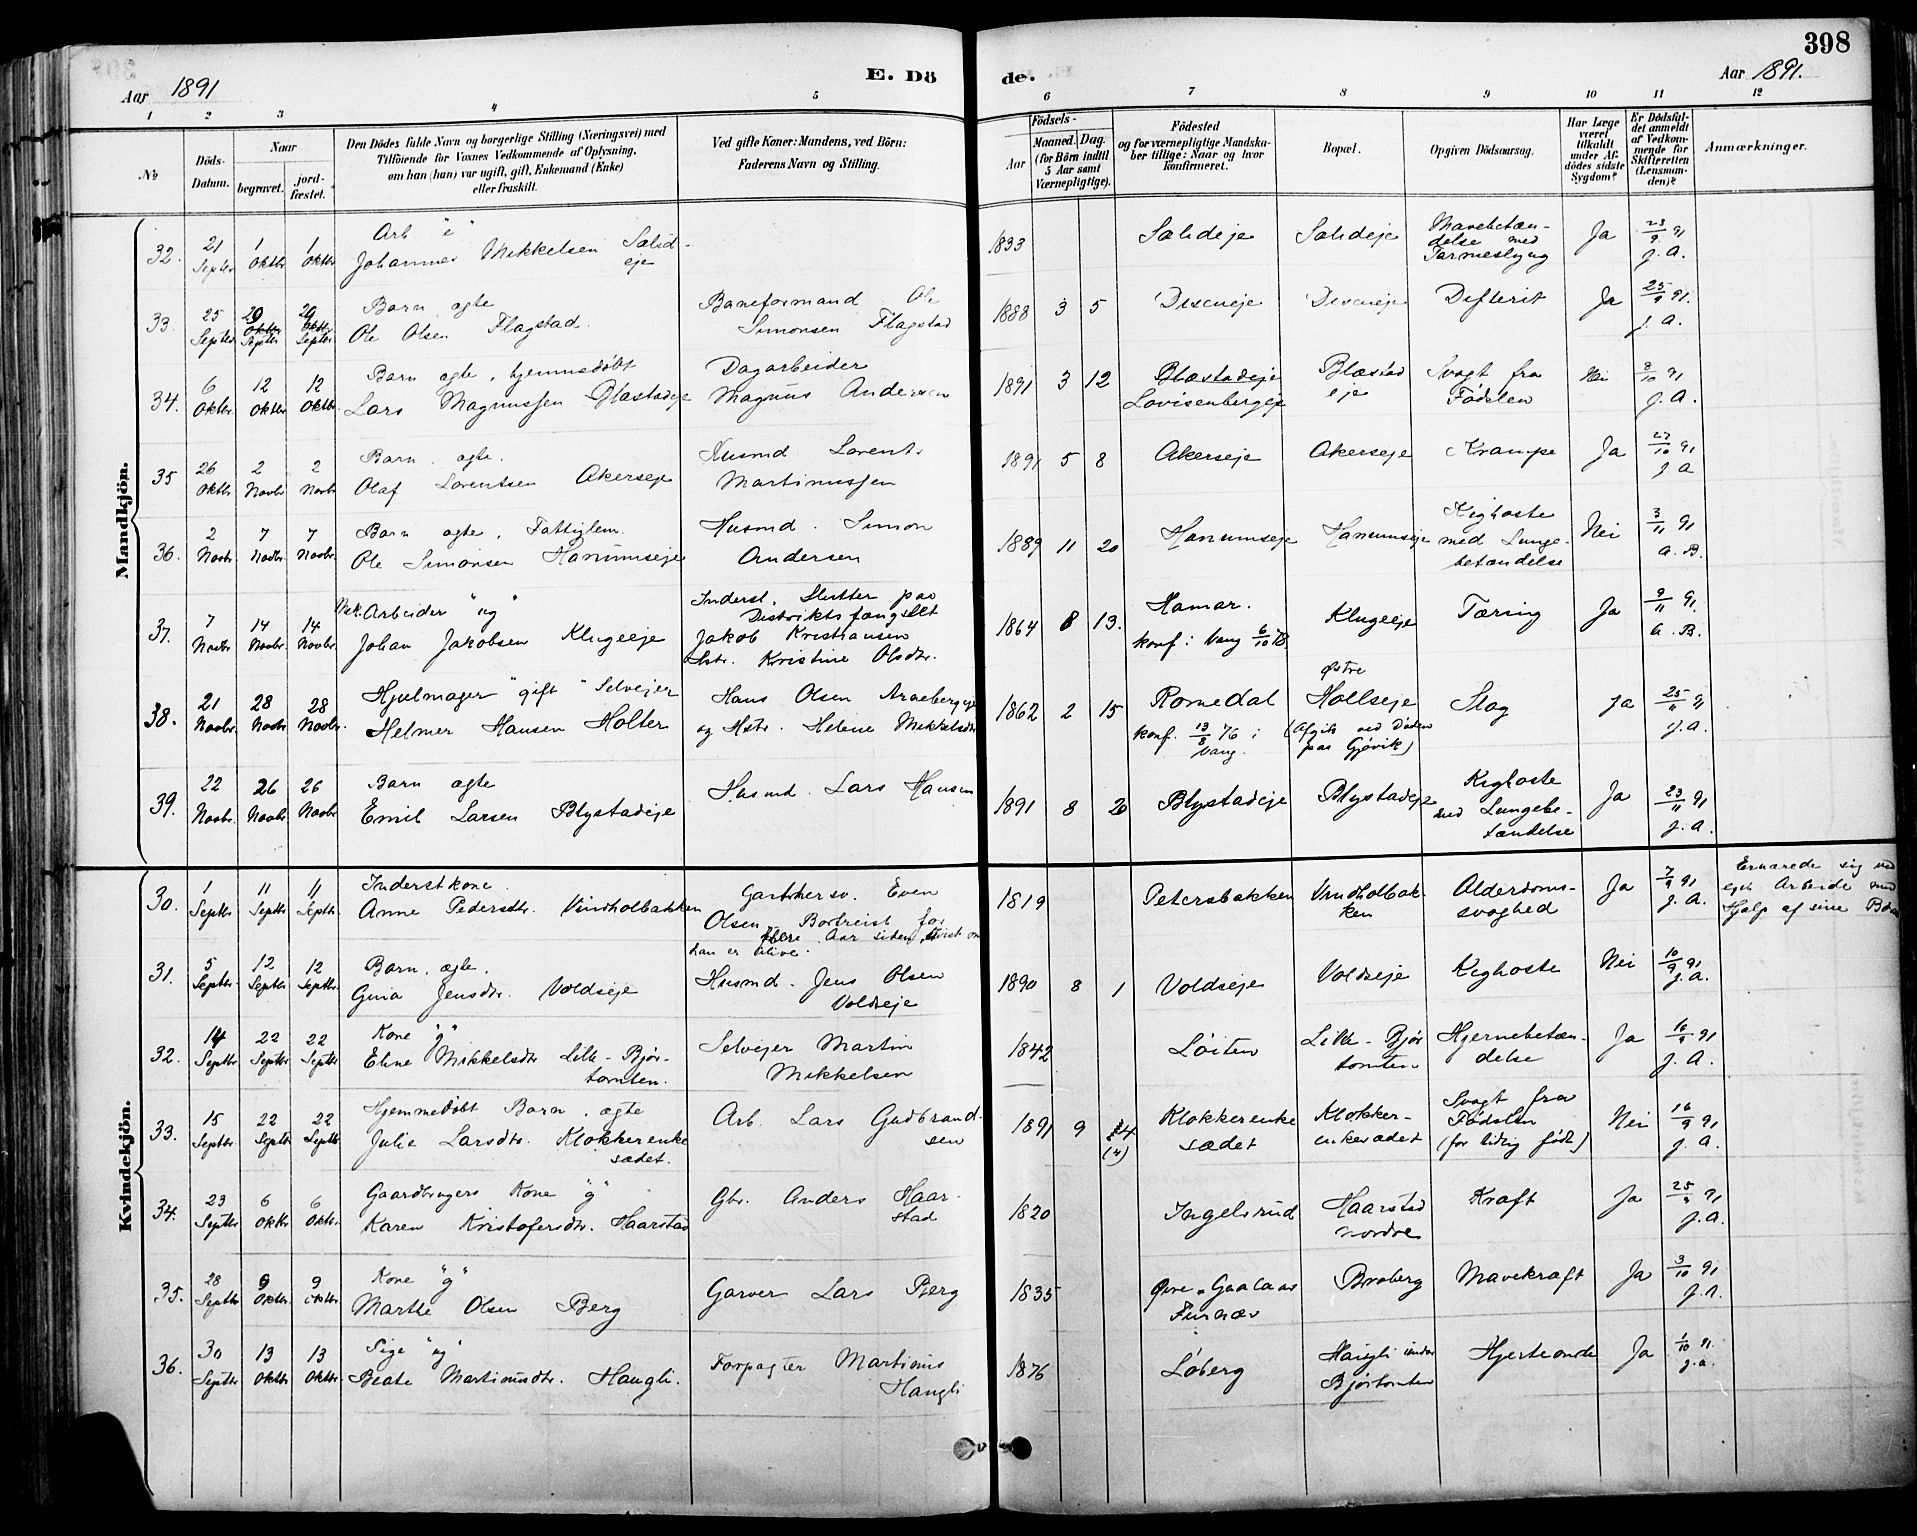 398
Aar 1891
E. Dö
de.
Aar 1891.
1 2 3 4 5 6 7 8 9 10 11 12
No
Döds-Datum.
Naar
begravet.
jordfæstet.
Den Dödes fulde Navn og borgerlige Stilling (Næringsvei) med
Tilföiende for Voxnes Vedkommende af Oplysning,
om han (hun) var ugift, gift, Enkemand (Enke)
eller fraskilt.
Ved gifte Koner: Mandens, ved Börn:
Faderens Navn og Stilling.
Födsels-
Aar
Maaned. Dag.
(for Börn indtil
5 Aar samt
Værnepligtige).
Födested
og for værnepligtige Mandskaber tillige: Naar og hvor
konfirmeret.
Bopæl.
Opgiven Dödsaarsag.
Har Læge
været
tilkaldt
under Afdödes sidste
Sygdom?
Er Dödsfaldet anmeldt
af Vedkommende for
Skifteretten
(Lensmanden)?
Anmærkninger.
Mandkjön.
32. 21 Septbr 1 Oktbr 1 Oktbr Arb
Johannes Mikkelsen Salideje 1833 Salideje Salideje Mavebetændelse med Tarmeslyng Ja 23/9 91 J. A.
33. 25 Septbr 29 Septbr 29 Septbr Barn ægte
Ole Olsen Flagstad. Baneformand Ole Simonsen Flagstad 1888 3 5 Disceneje Disceneje Difterit Ja 25/9 91. J. A.
34. 6 Oktbr. 12 Oktbr 12 Oktbr. Barn ægte, hjemmedøbt
Lars Magnussen Blæstadeje Dagarbeider Magnus Andersen 1891 3 12 Blæstadeje Lovisenbergeje Blæstadeje Svagt fra Fødslen Nei 8/10 91 J. A.
35 26 Oktbr 2 Novbr 2 Novbr Barn ægte.
Olaf Lorentsen Akerseje Husmd Lorents Martinussen 1891 5 8 Akerseje Akerseje Krampe Ja 27/10 91 J. A
36. 2 Novbr 7 Novbr 7 Novbr. Barn ægte, Fattiglem.
Ole Simonsen Hanumseje Husmd. Simon Andersen 1889 11 20 Hanumseje Hanumseje Kighoste med Lungebetændelse Nei 3/11 91 A. B.
37. 7 Novbr 14 Novbr. 14 Novbr. Mek. Arbeider "ug"
Johan Jakobsen Klugeeje Inderst, Slutter paa Distriktsfængslet Jakob Kristiansen Hstr. Kristine Olsdtr. 1864 8 13. Hamar. konf. i Vang 6/10 78 Klugeeje Tæring Ja 9/11 91. A. B.
38. 21 Novbr. 28 Novbr 28 Novbr. Hjulmager "gift" Selveier
Helmer Hansen Holter Hans Olsen Arnebergeje og Hstr. Helene Mikkelsdtr 1862 2 15 Romedal konf. 13/8 76 i Vang. Østre Hollseje (Afgik ved Døden paa Gjøvik) Slag Ja 25/11 91 J. A.
39. 22 Novbr. 26 Novbr 26 Novbr Barn ægte
Emil Larsen Blystadeje Husmd. Lars Hansen 1891 8 20 Blystadeje Blystadeje Kighoste med Lungebetændelse Ja 23/11 91 J. A.
Kvindekjön.
30. 1 Septbr 11 Septbr 11 Septbr Inderstkone.
Anne Pedersdtr. Vindholbakken Gartnersv. Even Olsen, Bortreist for flere Aar siden, uvist om han er ilive. 1819 Petersbakken Vindholbakken Alderdomssvaghed Ja 7/9 91 J. A. Ernærede sig ved eget Arbeide med Hjælp af sine Børn
31. 5 Septbr. 12 Septbr. 12 Septbr. Barn. ægte.
Gina Jensdtr. Voldseje Husmd. Jens Olsen Voldseje 1890 8 1 Voldseje Voldseje Kighoste Nei 10/9 91 J. A.
32. 14 Septbr 22 Septbr. 22 Septbr Kone "g"
Eline Mikkelsdtr Lille-Bjørtomten. Selveier Martin Mikkelsen 1842 Løiten Lille-Bjørtomten Hjernebetændelse Ja 16/9 91 J. A.
33. 15 Septbr. 22 Septbr 22 Septbr Hjemmedøbt Barn, ægte
Julie Larsdtr. Klokkerenkesædet. Arb. Lars Gudbrandsen 1891 9 14 Klokkerenkesædet Klokkerenkesædet Svagt fra Fødslen (for tidlig født) Nei 16/9 91 J. A.
34. 23 Septbr 6 Oktbr 6 Oktbr. Gaardbrugers Kone "g"
Karen Kristofersdtr. Haarstad Gbr. Anders Haarstad 1820 Ingelsrud Haarstad nordre Kræft Ja 25/9 91 J. A.
35. 28 Septbr 9 Oktbr. 9 Oktbr Kone "g"
Marthe Olsen Berg Garver Lars Berg 1835 Øvre Gaalaas Furnæs Broberg Mavekræft Ja 3/10 91 J. A.
36. 30 Septbr 13 Oktbr 13 Oktbr Pige "ug"
Beate Martinusdtr. Haugli. Forpagter Martinus Haugli 1876 Løberg Haugli under Bjørtomten Hjerteonde Ja 1/10 91. J. A.